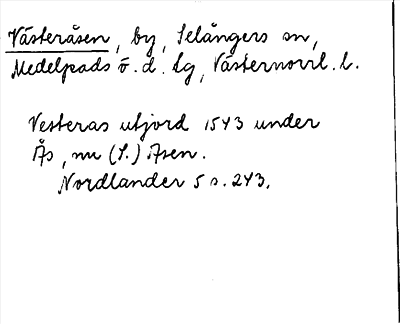 Västeråsen, by, Selångers sn,
Medelpads ö. d. tg, Västernorrl. l.
Vesteras utjord 1543 under
Ås, nu (S.) Åsen.
Nordlander 5 s. 243.